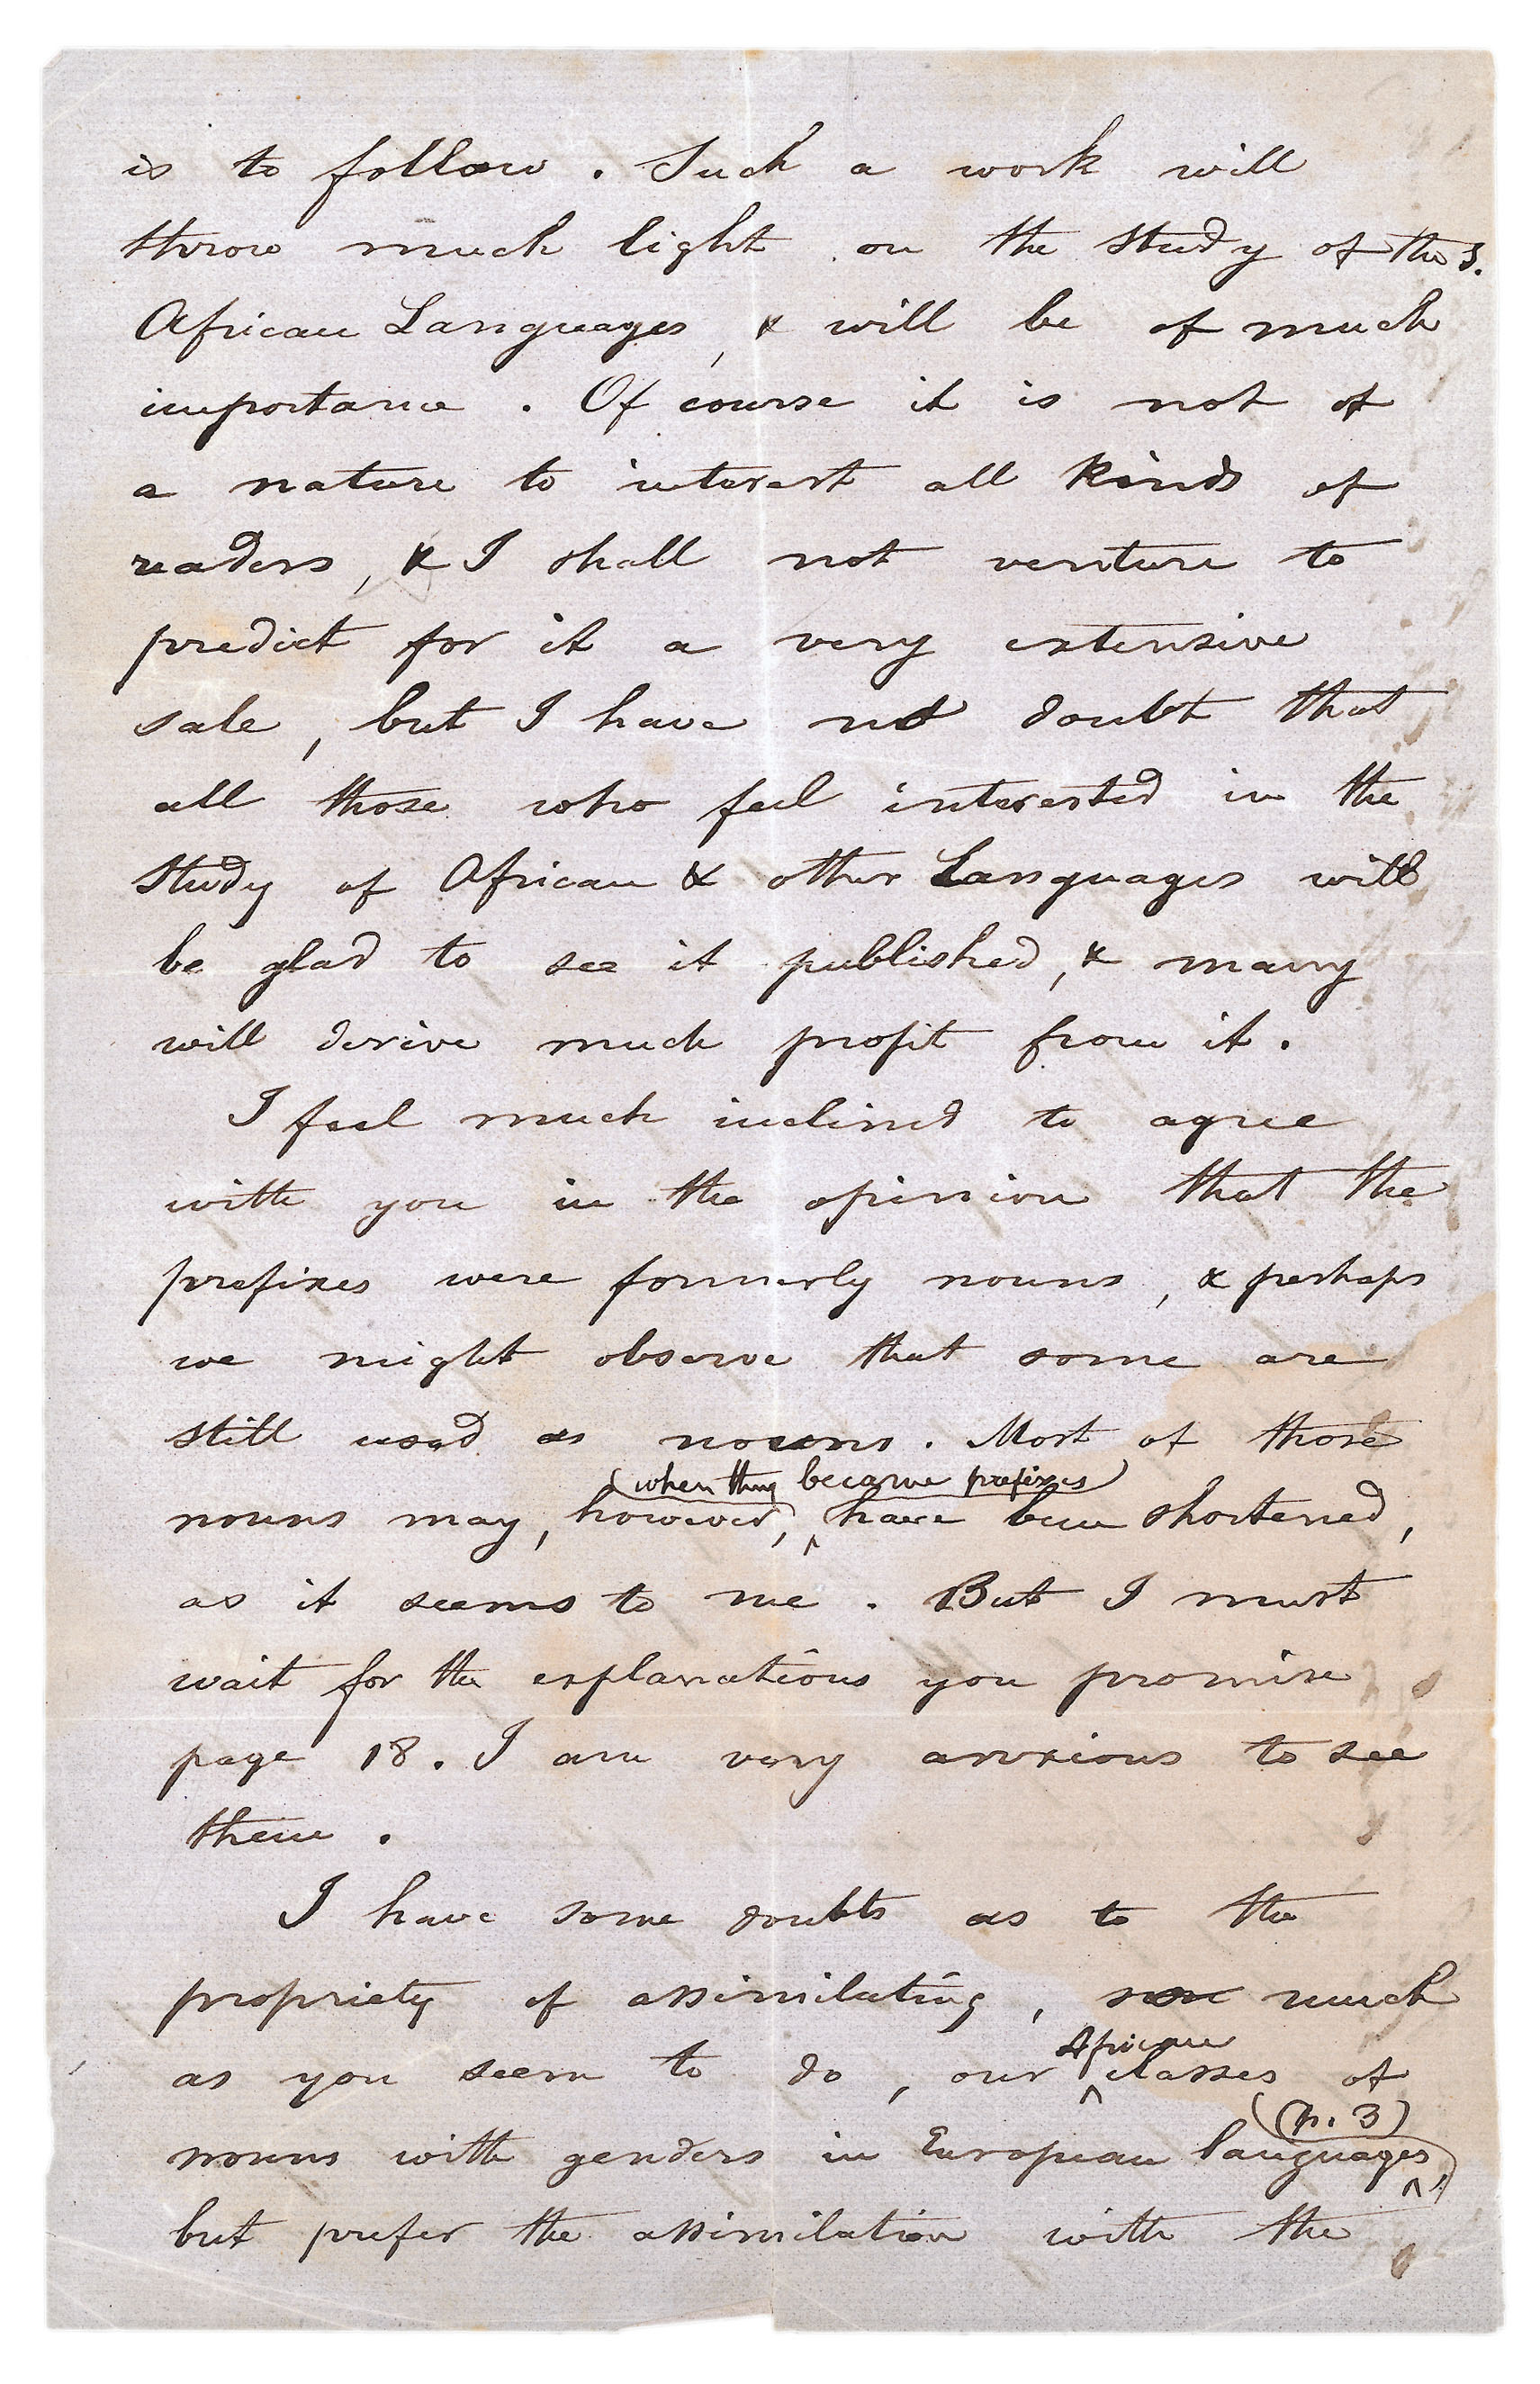 is to follow. Such a work will
throw much light on the study of the S.
African Languages, & will be of much
importance. Of course it is not of
a nature to interest all kinds of
readers, & I shall not venture to
predict for it a very extensive
sale, but I have no doubt that
all those who feel interested in the
study of African & other Languages will
be glad to see it published, & many
will derive much profit from it.
I feel much inclined to agree
with you in the opinion that the
prefixes were formerly nouns, & perhaps
we might observe that some are
still used as nouns. Most of those
(when they became prefixes)
nouns may, however, ^ have been shortened,
as it seems to me. But I must
wait for the explanations you promise
page 18. I am very anxious to see
them.
I have some doubts as to the
propriety of assimilating, much
African
as you seem to do, our ^ classes of
(p. 3)
nouns with genders in European languages ^,
but prefer the assimilation with the